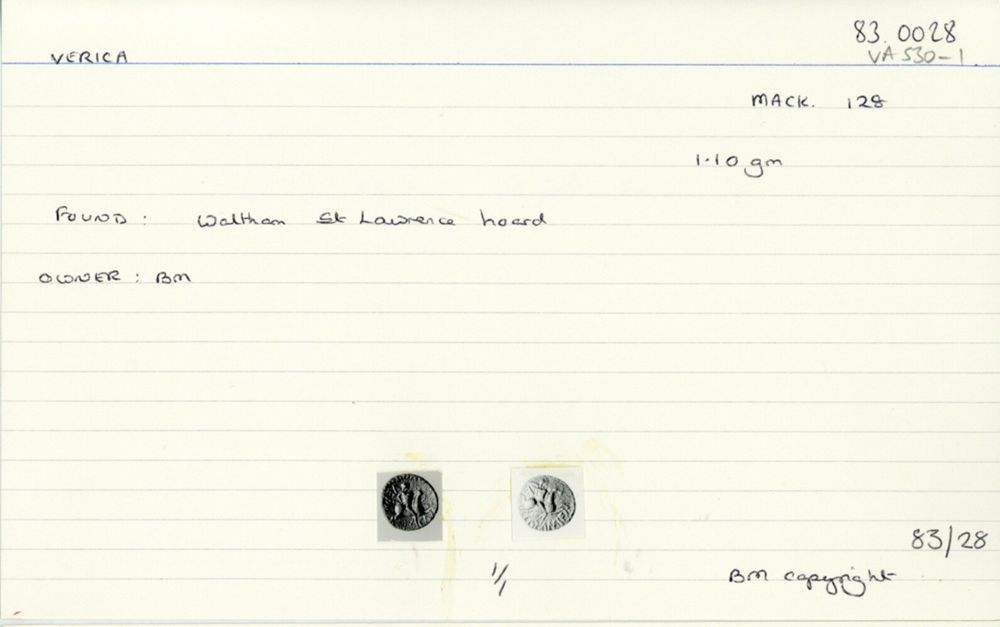 83.0028
VERICA
VA 530-1
MACK. 128
1.10 gm
FOUND: Waltham St Lawrence hoard
OWNER: BM
83/28
1/1
BM copyright